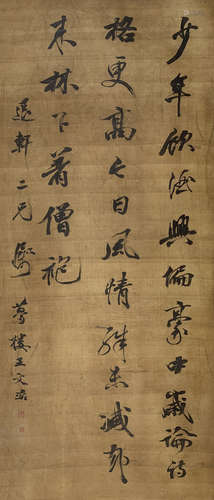 少年飲酒興偏豪中歲論詩
格更高今日風情殊未減却
來林下著僧袍
軒二兄
夢樓王文治